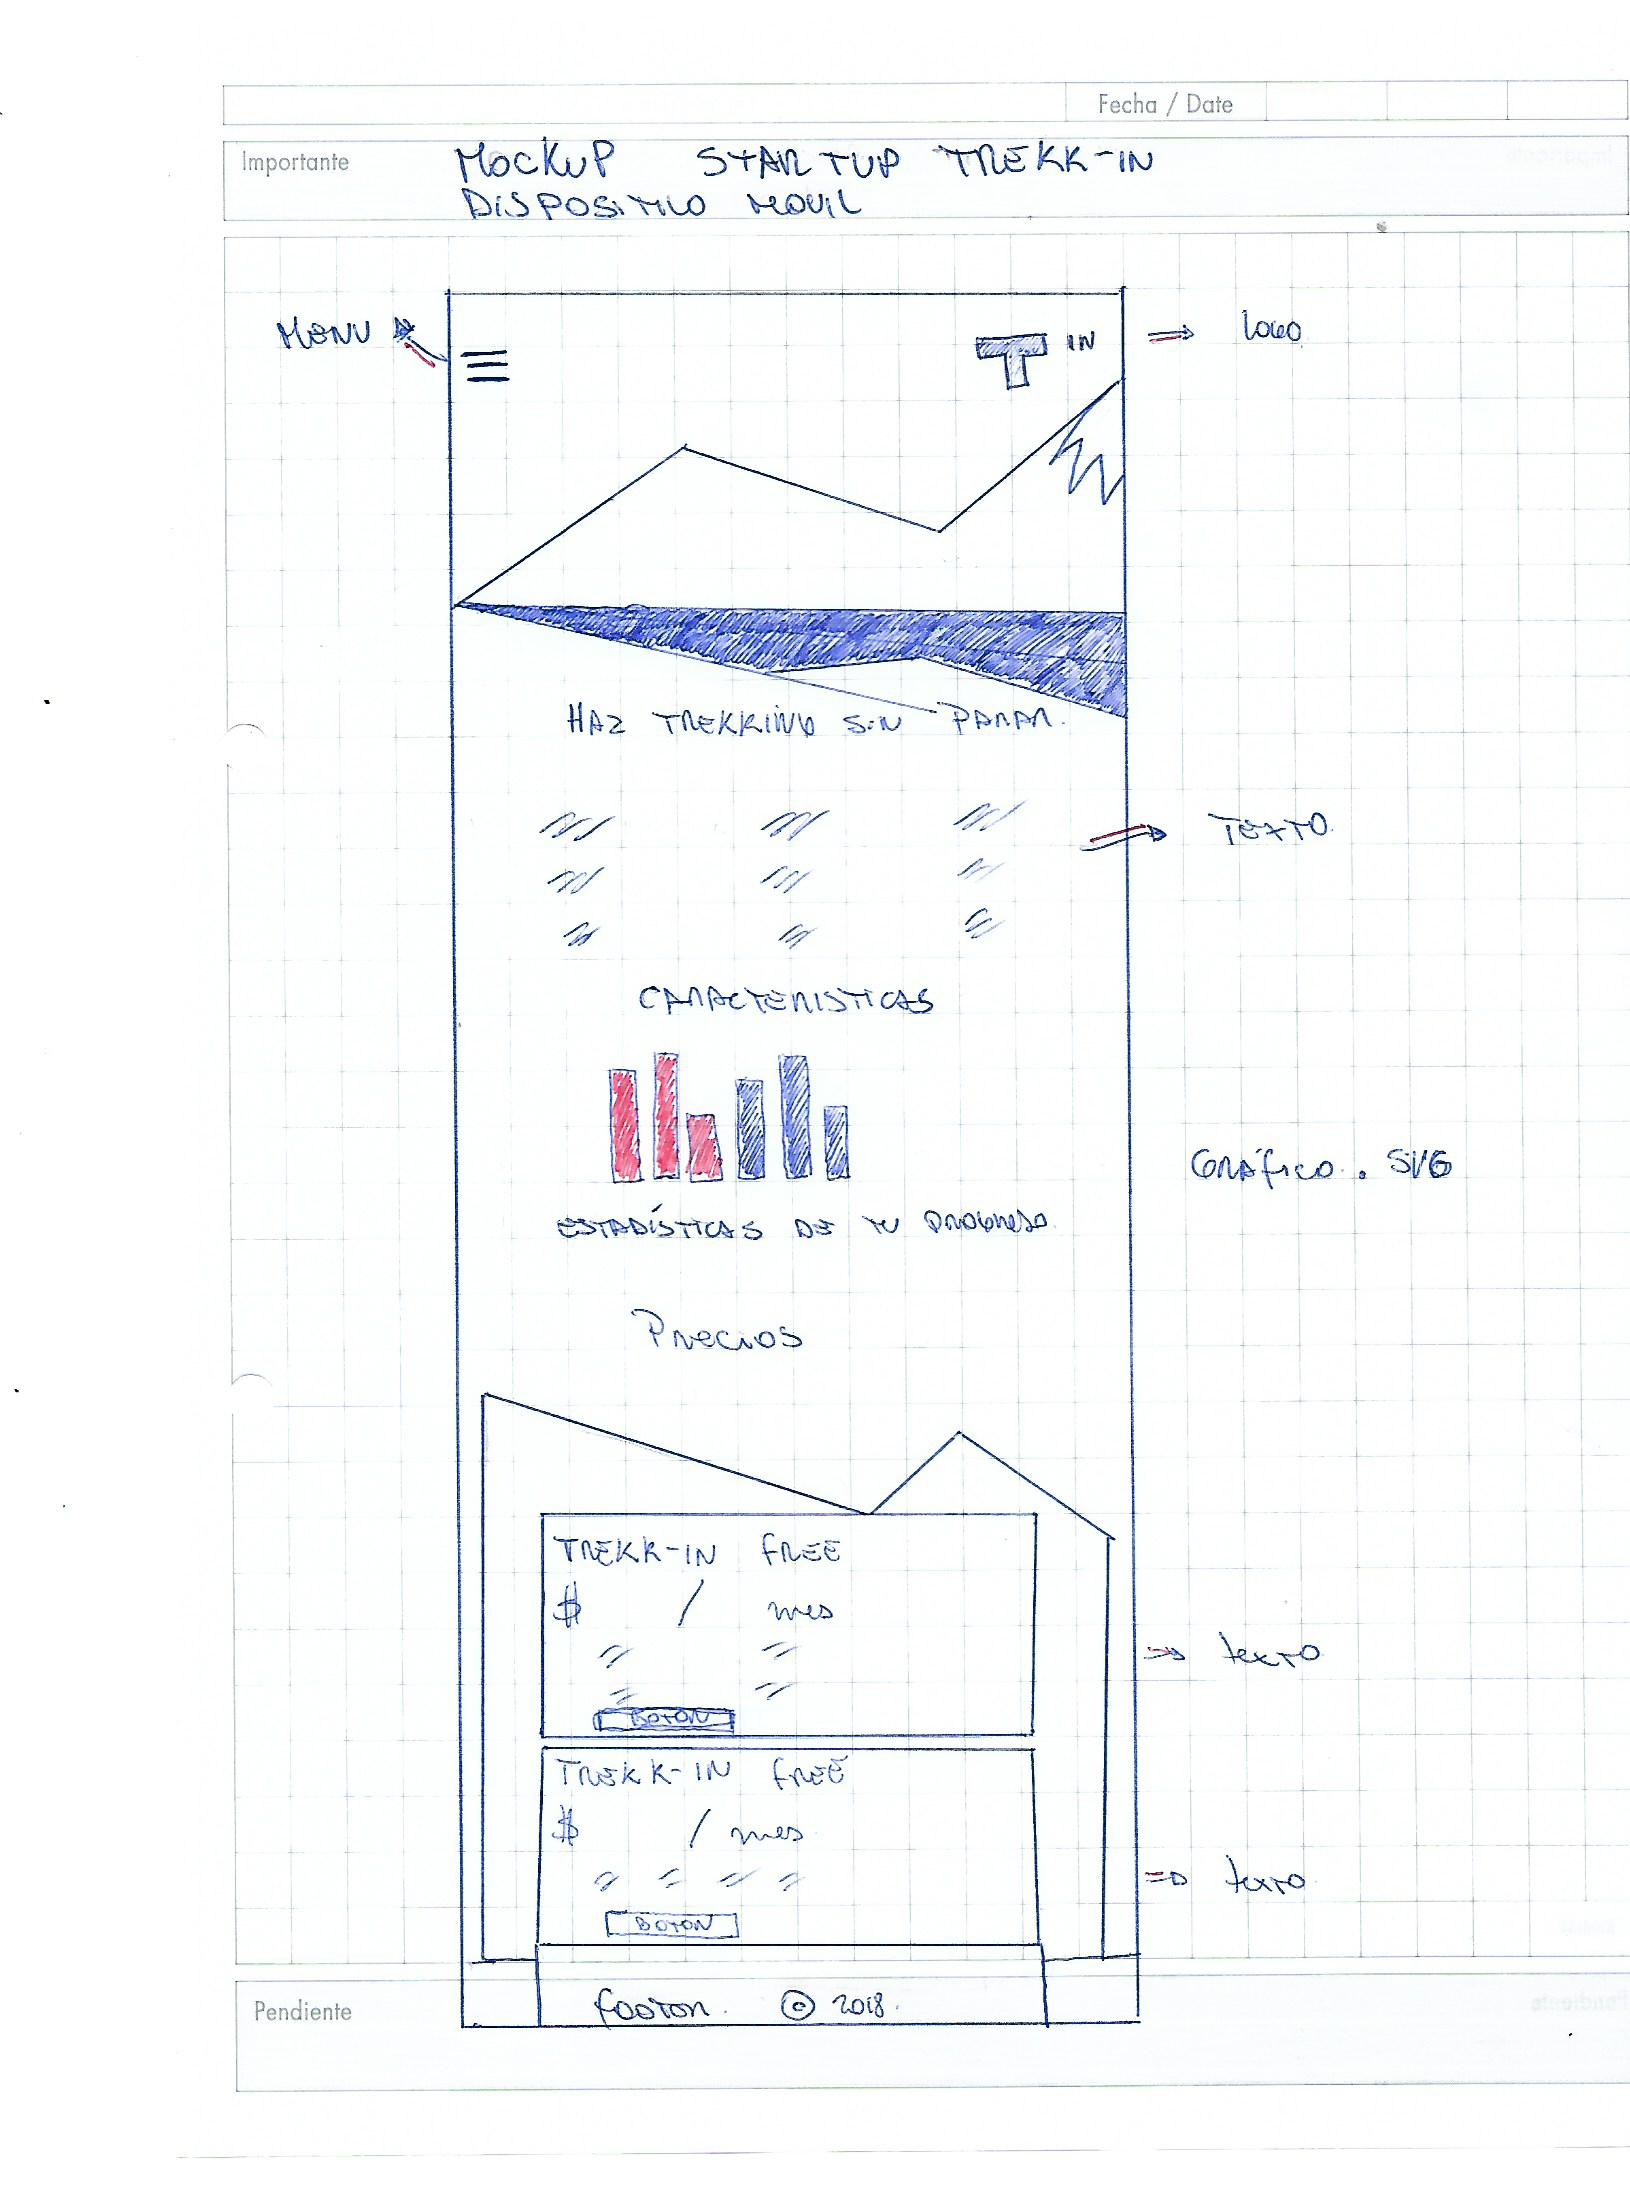 Fecha / Date
Importante
MOCKUP STARTUP TREKK-IN
DISPOSITIVO MOVIL
MENU
T IN
LOGO
HAZ TREKKING SIN PARAR.
TEXTO
CARACTERISTICAS
GRÁFICO . SVG
ESTADÍSTICAS DE TU PROGRESO
Precios
TREKK-IN FREE
$ / mes
texto
BOTON
TREKK-IN FREE
$ / mes
texto
BOTON
Pendiente
footer. © 2018.